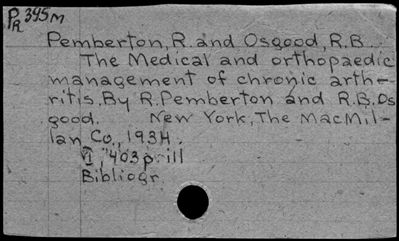 PR 395M
Pemberton, R. and Osgood, R.B.
The Medical and orthopaedic
management of chronic arth-
ritis. By R. Pemberton and R.B. Os
good. New York, The MacMil-
lan Co., 1934.
403 p ill
Bibliogr.